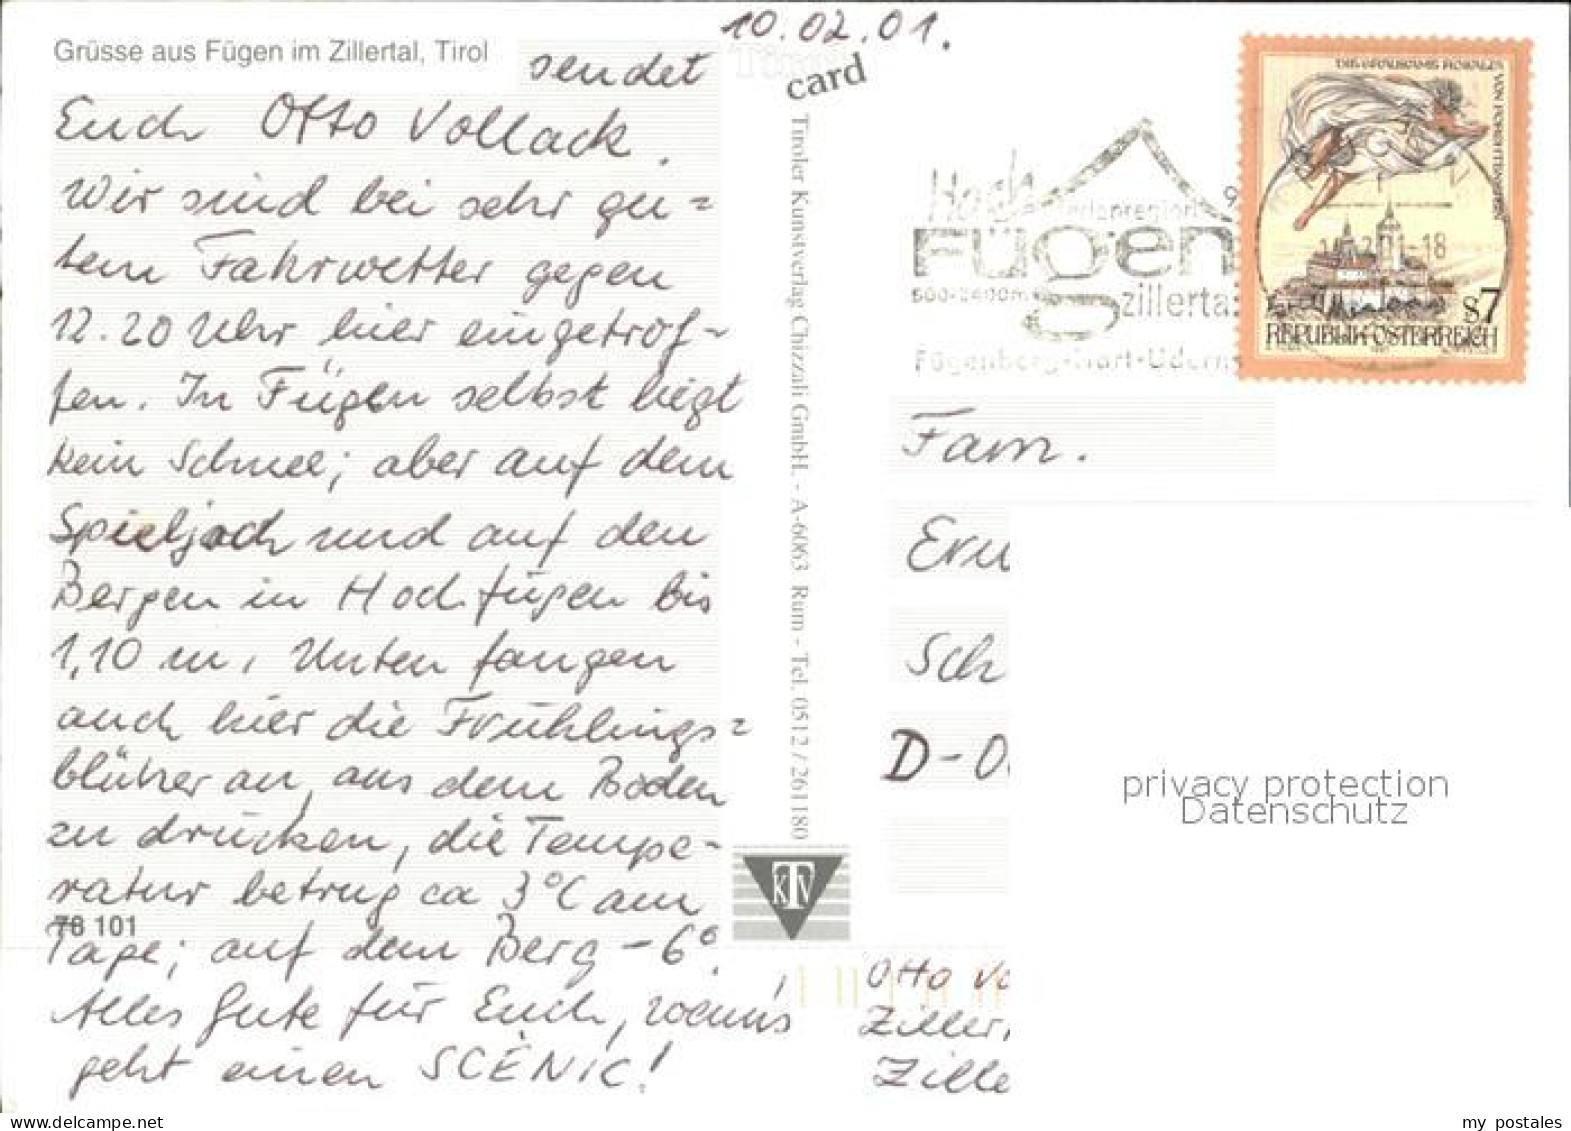 10.02.01.
Grüsse aus Fügen im Zillertal, Tirol
sendet
Euch Otto Vollack.
Wir sind bei sehr gu=
tem Fahrwetter gegen
12.20 Uhr hier eingetrof-
fen. In Fügen selbst liegt
kein Schnee; aber auf dem
Spieljoch und auf den
Bergen in Hochfügen bis
1,10 m. Unten fangen
auch hier die Frühlings=
blüher an, aus dem Boden
zu drücken, die Tempe-
ratur betrug ca 3°C am
78 101
Tage; auf dem Berg -6°.
Alles Gute für Euch, wenn's
geht einen SCÈNIC!
Tirol
card
Tiroler Kunstverlag Chizzali GmbH. - A-6063 Rum - Tel. 0512 / 261180
KTV
Hoch
Ferienregion
Fügen
zillertal
Fügenberg-Hart-Uderns
-18
S7
REPUBLIK ÖSTERREICH
Fam.
Sch
D-0
privacy protection
Datenschutz
Otto Vo
Ziller
Zille
my postales